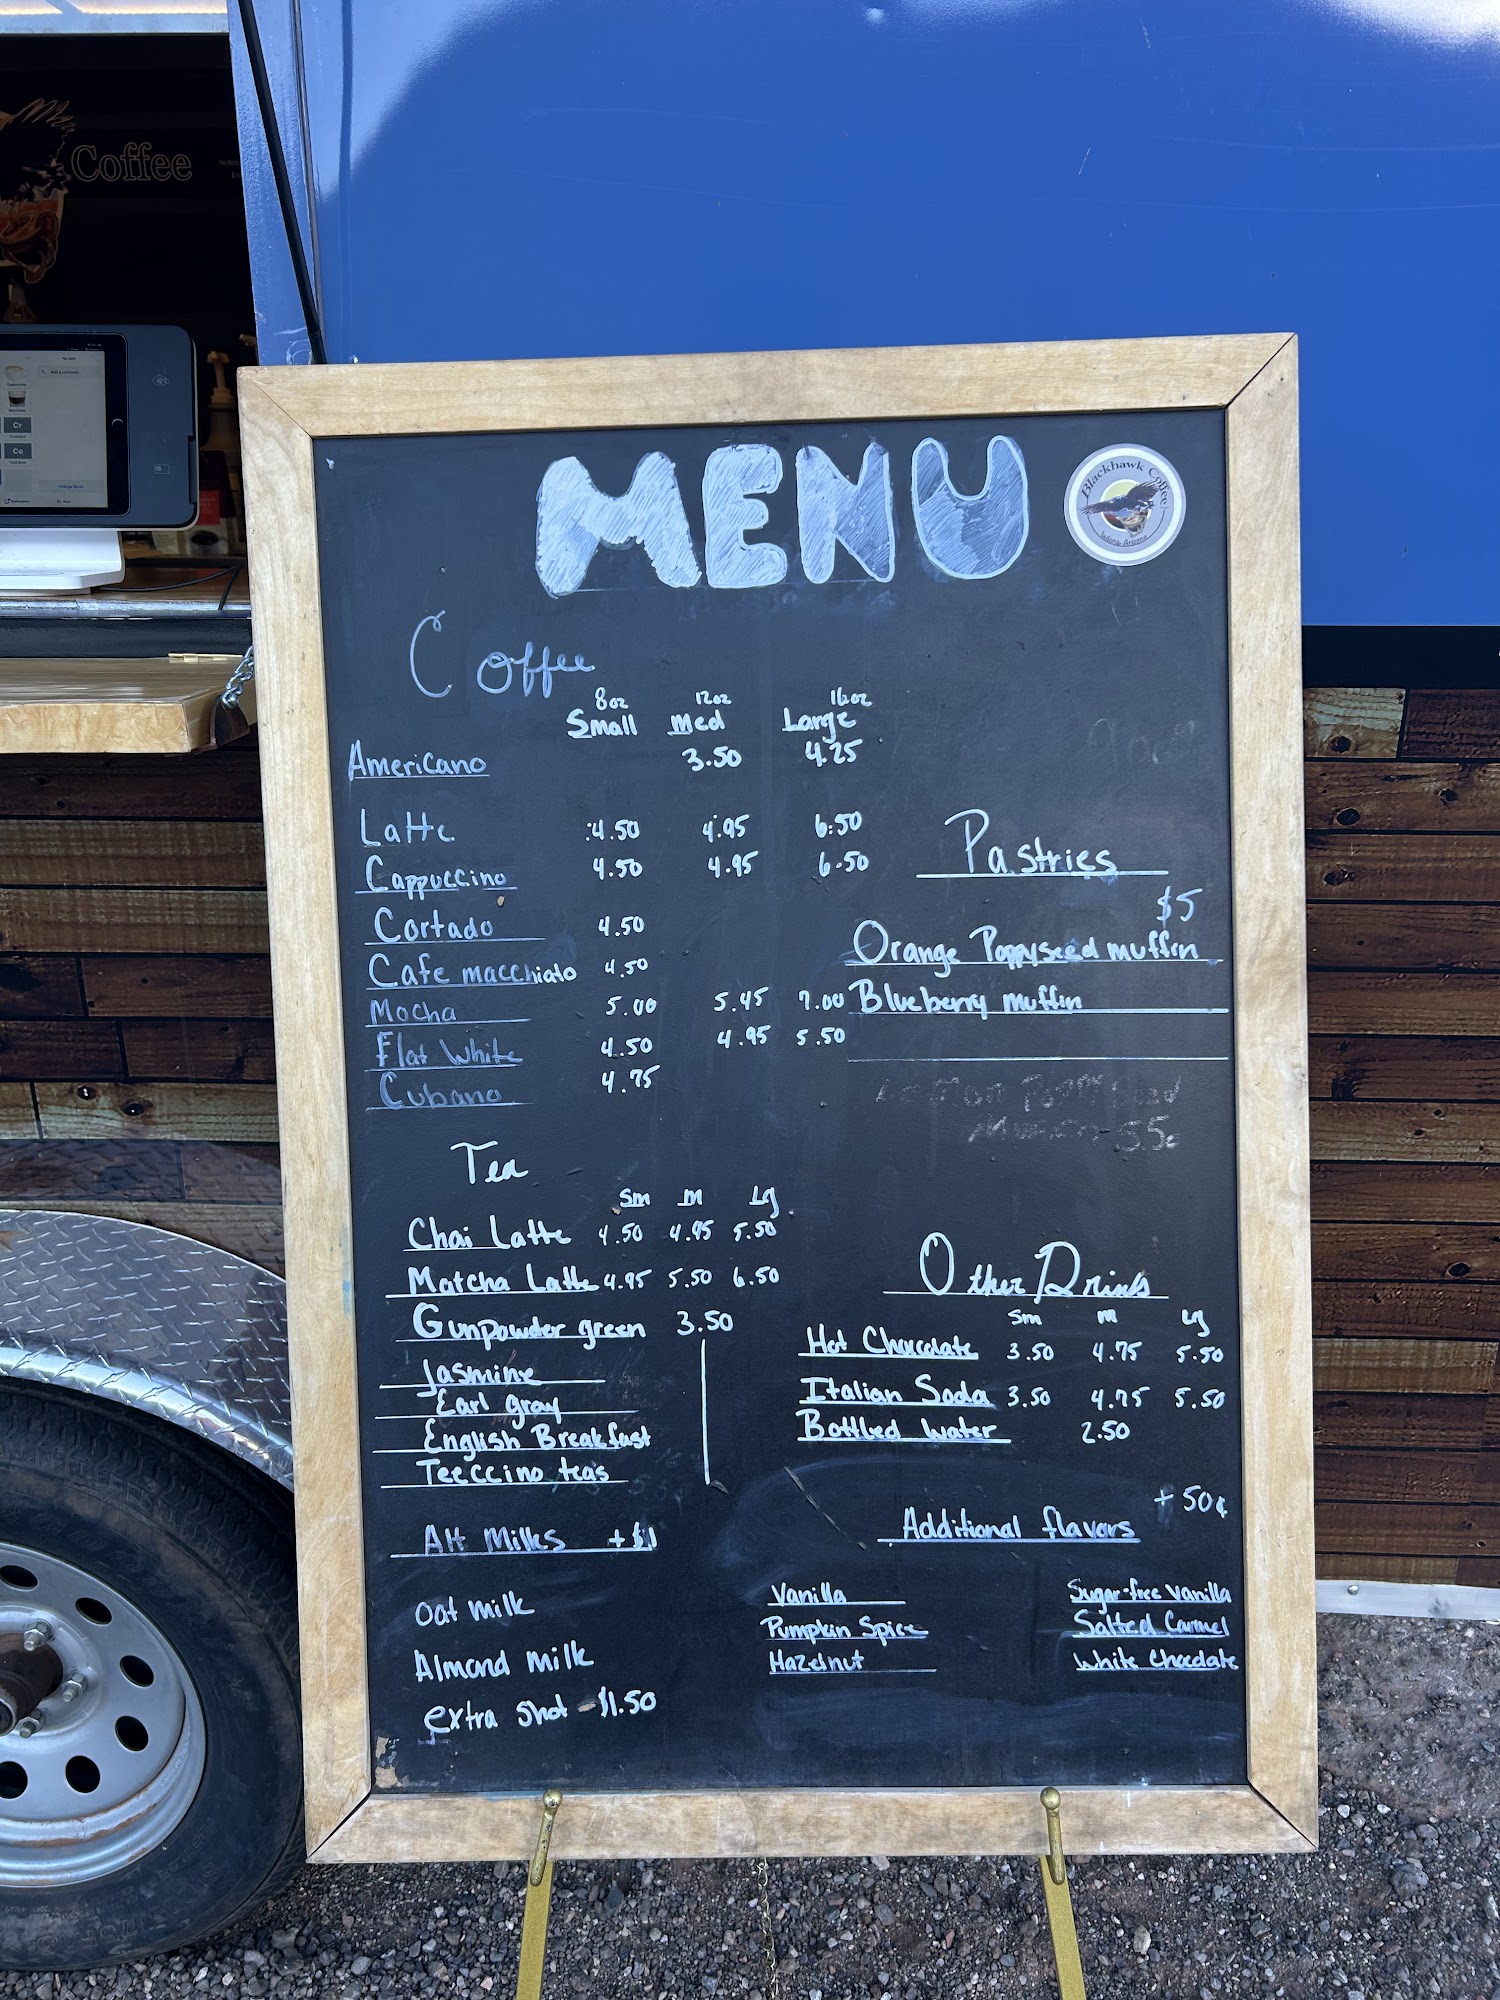 Coffee
MENU
Blackhawk Coffee
Sedona, Arizona
Coffee
8oz 12oz 16oz
Small Med Large
Americano 3.50 4.25
Latte 4.50 4.95 6.50
Cappuccino 4.50 4.95 6.50
Cortado 4.50
Cafe macchiato 4.50
Mocha 5.00 5.45 7.00
Flat White 4.50 4.95 5.50
Cubano 4.75
Pastries
$5
Orange Poppyseed muffin
Blueberry muffin
Tea
Sm M Lg
Chai Latte 4.50 4.95 5.50
Matcha Latte 4.95 5.50 6.50
Gunpowder green 3.50
Jasmine
Earl gray
English Breakfast
Teeccino teas
Alt Milks +$1
Oat milk
Almond milk
extra shot - $1.50
Other Drinks
Sm M Lg
Hot Chocolate 3.50 4.75 5.50
Italian Soda 3.50 4.75 5.50
Bottled Water 2.50
+ 50¢
Additional flavors
Vanilla Sugar-free Vanilla
Pumpkin Spice Salted Carmel
Hazelnut White Chocolate